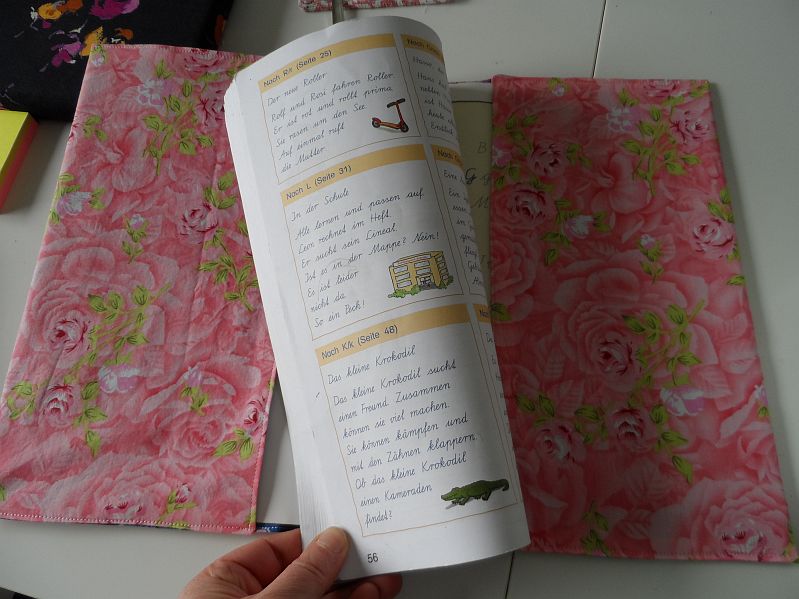 Nach R/r (Seite 25)
Der neue Roller
Rolf und Rosi fahren Roller.
Er ist rot und rollt prima.
Sie rasen um den See.
Auf einmal ruft
die Mutter.
Nach L (Seite 31)
In der Schule
Alle lernen und passen auf.
Leon rechnet im Heft.
Er sucht sein Lineal.
Ist es in der Mappe? Nein!
Es ist leider
nicht da.
So ein Pech!
Nach K/k (Seite 48)
Das kleine Krokodil
Das kleine Krokodil sucht
einen Freund. Zusammen
können sie viel machen.
Sie können kämpfen und
mit den Zähnen klappern.
Ob das kleine Krokodil
einen Kameraden
findet?
56
Nach
Hans
ist Hans
heute
Eine
Ein